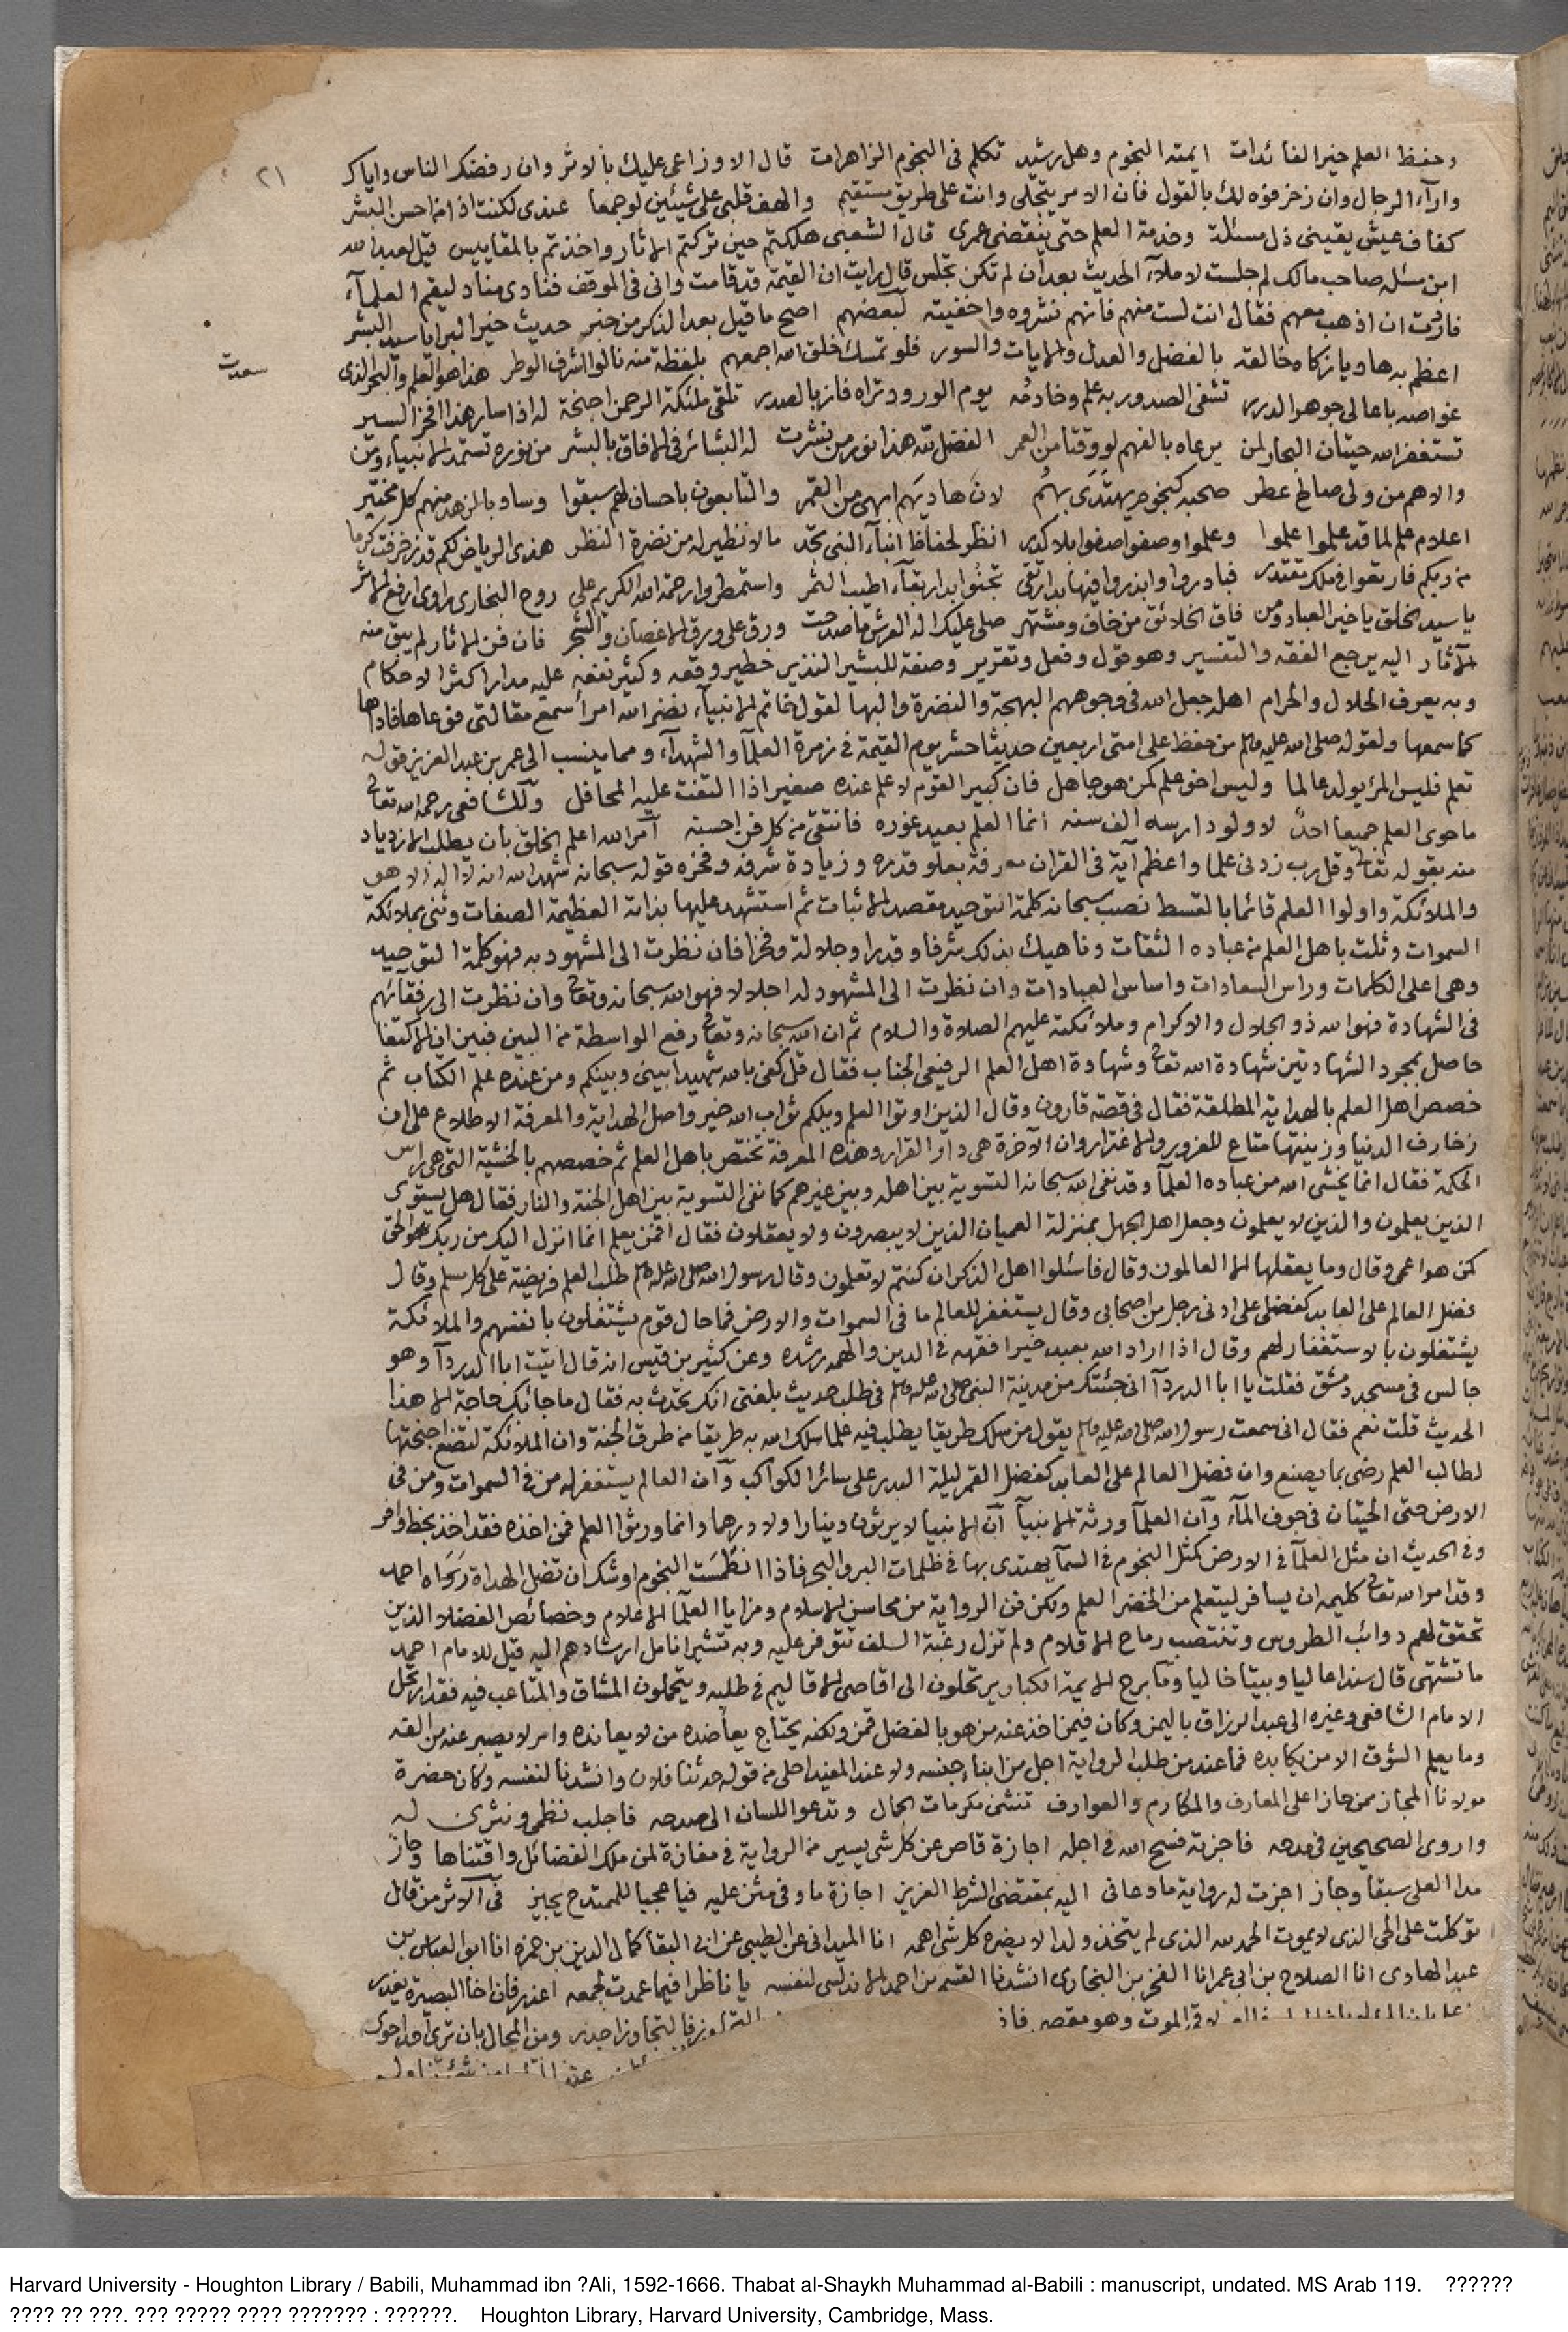 ٢١
وحفظ العلم خير الفائدات ايمته النجوم وهل رشيد تكلم فى النجوم الزاهرات قال الاوزاعى عليك بالاثر وان رفضك الناس واياك
وارآء الرجال وان زخرفوه لك بالقول فان الامر يتجلى وانت على طريق مستقيم والهف قلبى على شيئين لو جمعا عندى لكنت اذا من احسن البشر
كفاف عيش يقينى ذل مسئلة وخدمة العلم حتى ينقضى عمرى قال الشعبى هلكتم حين تركتم الاثار واخذتم بالمقاييس قيل لعبد الله
ابن مسله صاحب مالك لم جلست لاملآء الحديث بعد ان لم تكن تجلس قال رايت ان القيمة قد قامت وانى فى الموقف فنادى مناد ليقم العلمآء
فاردت ان اذهب معهم فقال انت لست منهم فانهم نشروه واخفيته لبعضهم اصح ما قيل بعد الذكر من خبر حديث خير البرايا سيد البشر
اعظم به هاديا زكاه خالقه بالفضل والعدل والايات والسور فلو تمسك خلق الله اجمعهم بلفظة منه نالوا اشرف الوطر هذا هو العلم والبحر الذى
سعدت
غواصه باعالى جوهر الدرر تشفى الصدور به علم وخادمه يوم الورود تراه فاز بالصدر تلقى ملئكة الرحمن اجنحة له اذا سار هذا الفخر السير
تستغفر الله حيتان البحار لمن يرعاه بالفهم لو وقتا من العمر الفضل لله هذا نور من نشرت له البشائر فى الافاق بالبشر من نوره تستمد الانبياء ومن
والاهم من ولى صالح عطر صحبه كنجوم يهتدى بهم لان هاديهم ابهى من القمر والتابعون باحسان لهم سبقوا وساد بالزهد منهم كل مختبر
اعلام علم لما قد علموا علموا وعلموا وصفوا صفوا بلا كدر انظر لحفاظ انبآء النبى تجد مالا نظير له من نضرة النظر هذى الرياض لكم قد زخرفت كرما
من ربكم فارتعوا فى ملك مقتدر فبادروا وابذروا فيها بدار تقى تجنوا بدار بقآء اطيب الثمر واستمطروا رحمة الله الكريم على روح البخارى راوى ارفع الاثر
يا سيد الخلق يا خير العباد ومن فاق الخلائق من خاف ومشتهر صلى عليك اله العرش ما صدحت ورق على ورق الاغصان والشجر فان فن الاثار لم يبق منه
الآثار اليه يرجع الفقه والتفسير وهو قول وفعل وتقرير وصفة للبشير النذير خطير وقعه وكثير نفعه عليه مدار اكثر الاحكام
وبه يعرف الحلال والحرام اهله جعل الله فى وجوههم البهجة والنضرة والبها لقول خاتم الانبيآء نضر الله امرأ سمع مقالتى فوعاها فاداها
كما سمعها ولقوله صلى الله عليه وسلم من حفظ على امتى اربعين حديثا حشر يوم القيمة فى زمرة العلمآ والشهدآء ومما ينسب الى عمر بن عبد العزيز قوله
تعلم فليس المرء يولد عالما وليس اخو علم كمن هو جاهل فان كبير القوم لا علم عنده صغير اذا التفت عليه المحافل وللشافعى رحمه الله تعالى
ما حوى العلم جميعا احد لا ولو دارسه الف سنه انما العلم بعيد غوره فانتقى من كل فن احسنه امر الله اعلم الخلق بان يطلب الازدياد
منه بقوله تعالى وقل رب زدنى علما واعظم آية فى القران معرفة بعلو قدره وزيادة شرفه وفخره قوله سبحانه شهد الله انه لا اله الا هو
والملائكة واولوا العلم قائما بالقسط نصب سبحانه كلمة التوحيد مقصد الاثبات ثم استشهد عليها بذاته العظيمة الصفات وثنى بملائكة
السموات وثلث باهل العلم من عباده الثقات وناهيك بذلك شرفا وقدرا وجلالة وفخرا فان نظرت الى المشهود به فهو كلمة التوحيد
وهى اعلى الكلمات وراس السعادات واساس العبادات وان نظرت الى المشهود له اجلالا فهو الله سبحانه وتعالى وان نظرت الى رفقآئهم
فى الشهادة فهو الله ذو الجلال والاكرام وملائكته عليهم الصلاة والسلام ثم ان الله سبحانه وتعالى رفع الواسطة من البين فبين ان الاكتفا
حاصل بمجرد الشهادتين شهادة الله تعالى وشهادة اهل العلم الرفيعى الجناب فقال قل كفى بالله شهيدا بينى وبينكم ومن عنده علم الكتاب ثم
خصص اهل العلم بالهداية المطلقة فقال فى قصة قارون وقال الذين اوتوا العلم ويلكم ثواب الله خير واصل الهداية والمعرفة الاطلاع على ان
زخارف الدنيا وزينتها متاع للغرور والاغترار وان الآخرة هى دار القرار وهذه المعرفة تختص باهل العلم ثم خصصهم بالخشية التى هى راس
الحكمة فقال انما يخشى الله من عباده العلمآ وقد نفى الله سبحانه التسوية بين اهله وبين غيرهم كما نفى التسوية بين اهل الجنة والنار فقال هل يستوى
الذين يعلمون والذين لا يعلمون وجعل اهل الجهل بمنزلة العميان الذين لا يبصرون ولا يعقلون فقال افمن يعلم انما انزل اليك من ربك هو الحق
كمن هو اعمى وقال وما يعقلها الا العالمون وقال فاسئلوا اهل الذكر ان كنتم لا تعلمون وقال رسول الله صلى الله عليه وسلم طلب العلم فريضة على كل مسلم وقال
فضل العالم على العابد كفضلى على ادنى رجل من اصحابى وقال يستغفر للعالم ما فى السموات والارض فما حال قوم يشتغلون بانفسهم والملائكة
يشتغلون بالاستغفار لهم وقال اذا اراد الله بعبد خيرا فقهه فى الدين والهمه رشده وعن كثير بن قيس انه قال اتيت ابا الدردآ وهو
جالس فى مسجد دمشق فقلت يا ابا الدردآ انى جئتك من مدينة النبى صلى الله عليه وسلم فى طلب حديث بلغنى انك تحدث به فقال ما جائك حاجة الا هذا
الحديث قلت نعم فقال انى سمعت رسول الله صلى الله عليه وسلم يقول من سلك طريقا يطلب فيه علما سلك الله به طريقا من طرق الجنة وان الملائكة لتضع اجنحتها
لطالب العلم رضى بما يصنع وان فضل العالم على العابد كفضل القمر ليلة البدر على سائر الكواكب وان العالم يستغفر له من فى السموات ومن فى
الارض حتى الحيتان فى جوف المآء وان العلمآ ورثة الانبيآ ان الانبيا لا يرثون دينارا ولا درهما وانما ورثوا العلم فمن اخذه فقد اخذ بحظ وافر
وفى الحديث ان مثل العلمآ فى الارض كمثل النجوم فى السمآ يهتدى بها فى ظلمات البر والبحر فاذا انطمست النجوم اوشك ان تضل الهداة رواه احمد
وقد امر الله تعالى كليمه ان يسافر ليتعلم من الخضر العلم ولكن فن الرواية من محاسن الاسلام ومزايا العلمآ الاعلام وخصائص الفضلا الذين
تخفق لهم ذوائب الطروس وتنتصب رماح الاقلام ولم تزل رغبة السلف تتوفر عليه وبه تشير انامل ارشادهم اليه قيل للامام احمد
ما تشتهى قال سندا عاليا وبيتا خاليا وما برح الايمة الكبار يرتحلون الى اقاصى الاقاليم فى طلبه ويتحملون المشاق والمتاعب فيه فقد ارتحل
الامام الشافعى وغيره الى عبد الرزاق باليمن وكان فيمن اخذ عنه من هو بالفضل قمن ولكنه يحتاج يعاضده من لا يعانده وامر لا يصبر عنه من الفه
وما يعلم الشوق الا من يكابده فما عند من طلب الرواية اجل من ابناء جنسه ولا عند المفيد احلى من قوله حدثنا فلان وانشدنا لنفسه وكان حضرة
مولانا المجاز ممن حاز اعلى المعارف والمكارم والعوارف تنشى مكرمات الحال وتدعوا اللسان الى مدحه فاجلب نظمى ونثرى له
واروى الصحيحين فى مدحه فاجزته فسح الله فى اجله اجازة قاصر عن كل شى يسير من الرواية فى مفازة لمن ملك الفضائل واقتناها وحاز
مدا العلى سبقا وجاز اجزت له رواية ما دعانى اليه بمقتضى الشرط العزيز اجازة ما وفى مثن عليه فيا عجبا للممتدح يجيز فى الاثر من قال
توكلت على الحى الذى لا يموت الحمد لله الذى لم يتخذ ولدا لا يضره كل شى اهمه انا الميدانى عن الطيبى عن ابى البقا كمال الدين بن حمزه انا ابو العباس بن
عبد الهادى انا الصلاح بن ابى عمر انا الفخر بن البخارى انشدنا القسم بن احمد الاندلسى لنفسه يا ناظرا فيما عمدت لجمعه اعذر فان اخا البصيرة يعذر
لاقى الموت وهو مقصر فاذا فالتجاوز اجدر ومن المحال بان ترى احدا حوى